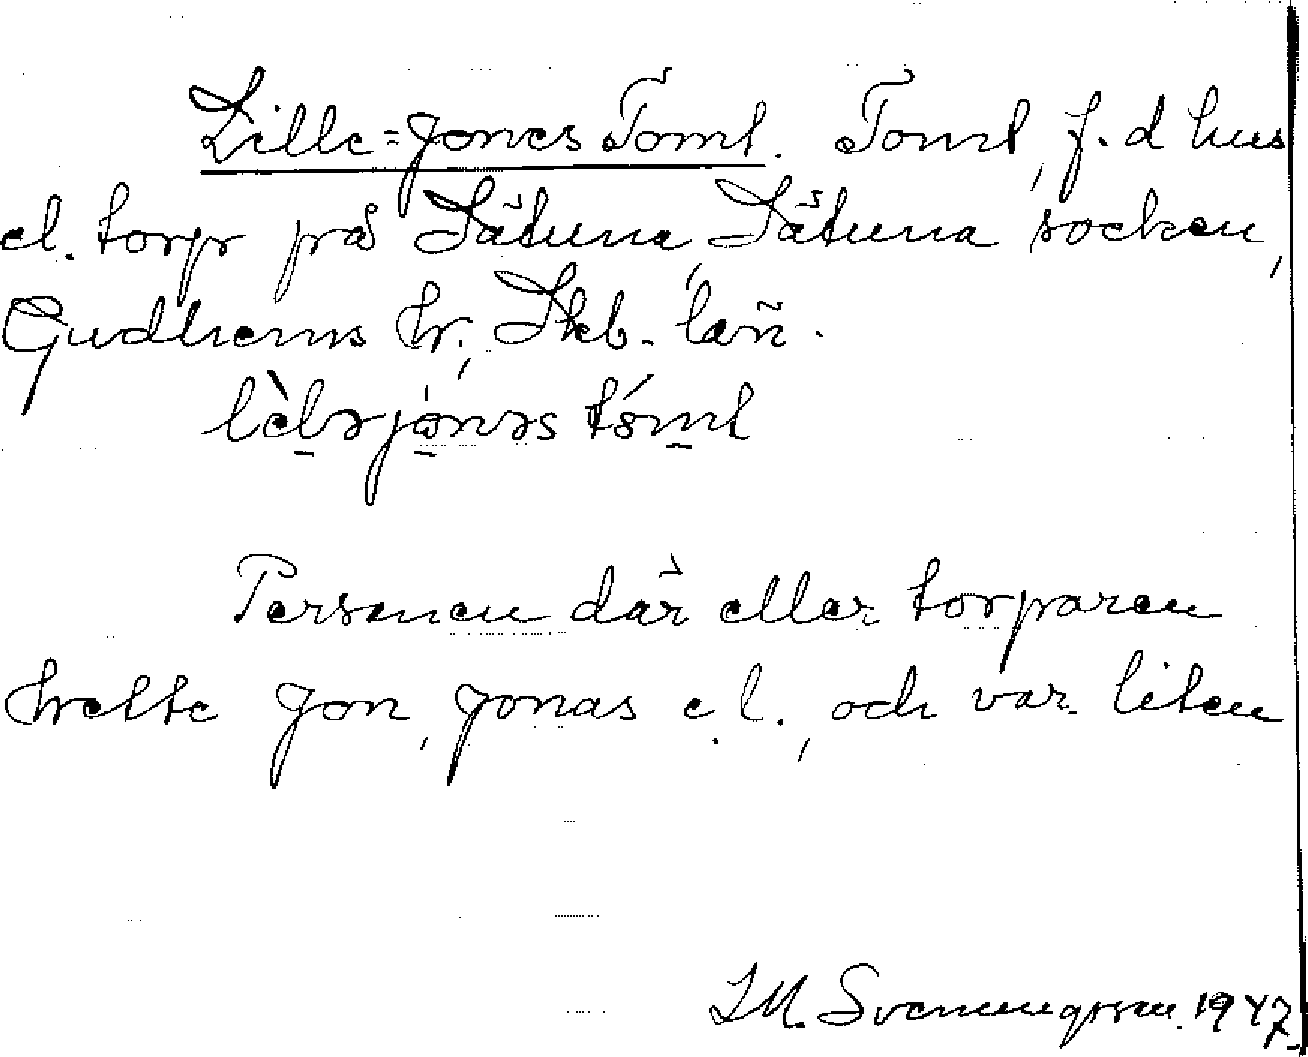 Lille=Jones Tomt. Tomt, f. d hus
el. torp på Sätuna, Sätuna socken,
Gudhems hr., Skb. län.
Personen där eller torparen
hette Jon, Jonas e. l., och var liten
Svenningsson. 1947